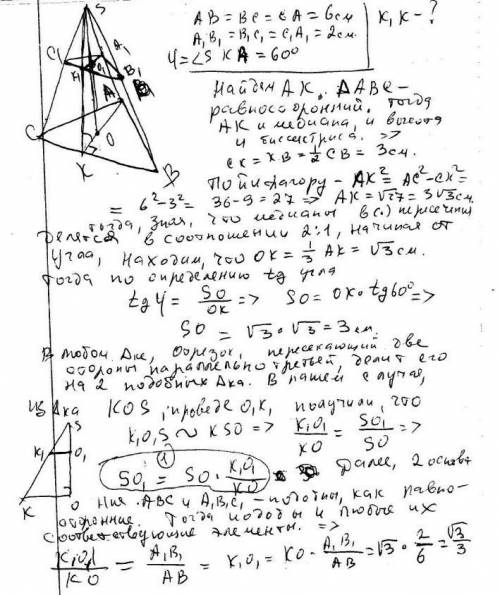 S
AB = BC = CA = 6см
K₁K - ?
A₁B₁ = B₁C₁ = C₁A₁ = 2см.
φ = ∠SKA = 60°
C₁ H O₁ A₁ B₁
A
C O
K
B
Найдем AK. ΔABC -
равносторонний. Тогда
AK и медиана, и высота
и биссектриса. =>
CK = KB = ½ CB = 3см.
По Пифагору - AK² = AC² - CK² =
= 6² - 3² = 36 - 9 = 27 => AK = √27 = 3√3 см.
Тогда, зная, что медианы в (.) пересечения
делятся в соотношении 2:1, начиная от
угла, находим, что OK = ⅓ AK = √3 см.
Тогда по определению tg угла
tg φ = SO/OK => SO = OK · tg60° =>
SO = √3 · √3 = 3см.
В любом Δке, отрезок, пересекающий две
стороны параллельно третьей, делит его
на 2 подобных Δка. В нашем случае,
из Δка KOS, проведя O₁K₁ получили, что
K₁O₁S ~ KSO => K₁O₁/KO = SO₁/SO =>
S
K₁ O₁
K O
① SO₁ = SO · K₁O₁/KO
Далее, 2 основа-
ния ABC и A₁B₁C₁ - подобны, как равно-
сторонние. Тогда подобны и любые их
соответствующие элементы. =>
K₁O₁/KO = A₁B₁/AB = K₁O₁ = KO · A₁B₁/AB = √3 · 2/6 = √3/3